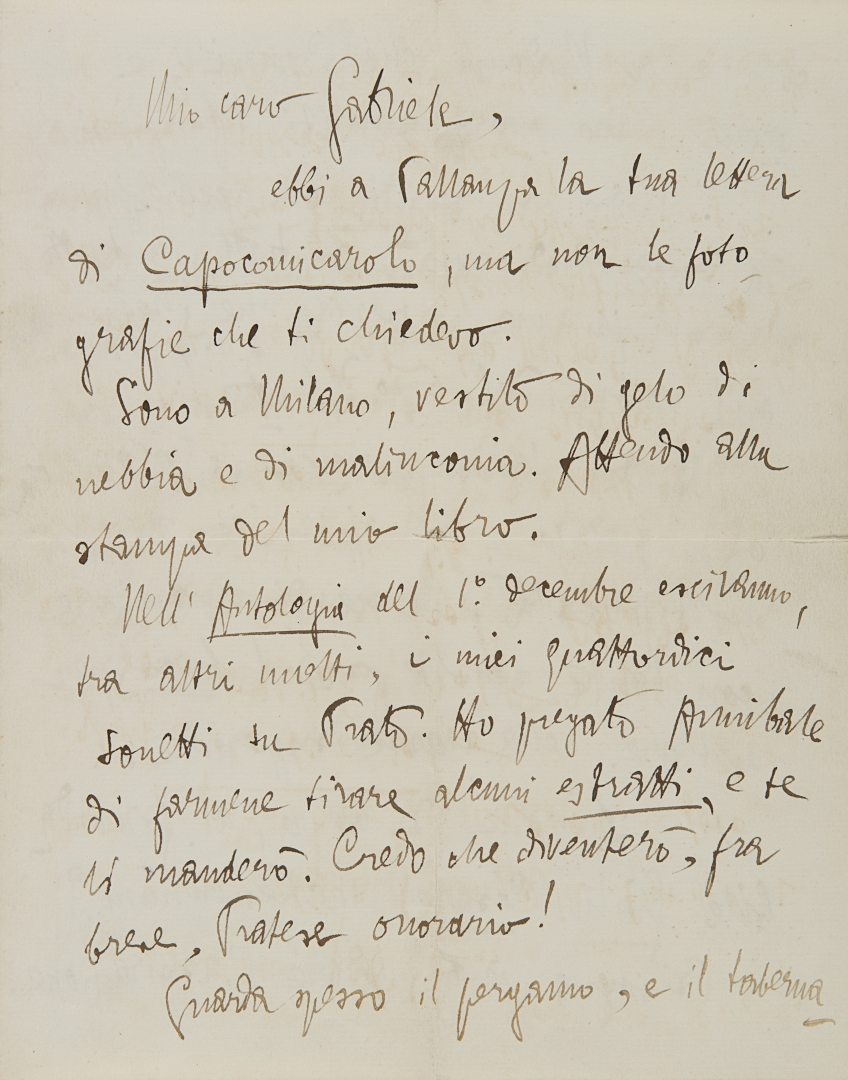 Mio caro Gabriele,
ebbi a Pallanza la tua lettera
di Capocomicarolo, ma non le foto
grafie che ti chiedevo.
Sono a Milano, vestito di gelo di
nebbia e di malinconia. Attendo alla
stampa del mio libro.
Nell' Antologia del 1.° decembre esciranno,
tra altri molti, i miei quattordici
sonetti su Prato. Ho pregato Annibale
di farmene tirare alcuni estratti, e te
li manderò. Credo che diventerò, fra
breve, Pratese onorario!
Guarda spesso il pergamo, e il taberna